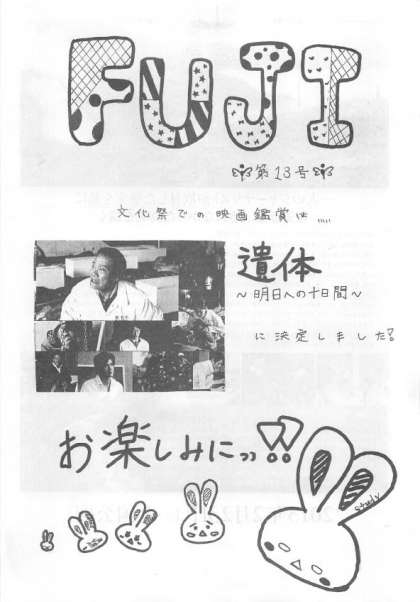 FUJI
第13号
文化祭での映画鑑賞は……
遺体
～明日への十日間～
に決定しました
お楽しみにっっ!!
study